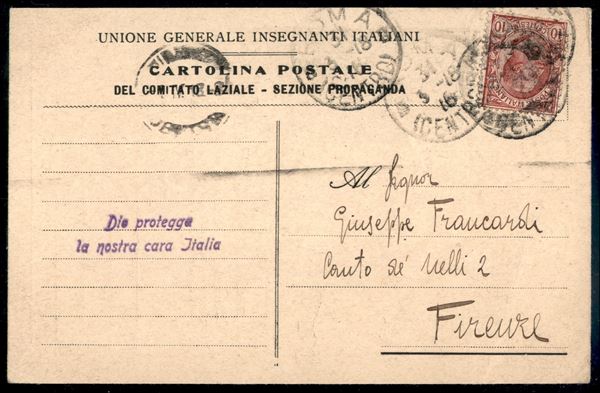 UNIONE GENERALE INSEGNANTI ITALIANI
CARTOLINA POSTALE
DEL COMITATO LAZIALE - SEZIONE PROPAGANDA
ROMA
(CENTRO)
ROMA
(CENTRO)
10
10
Dio protegga
la nostra cara Italia
Al Signor
Giuseppe Francardi
Canto de' Nelli 2
Firenze